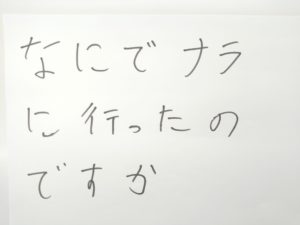 なにでナラ
に行ったの
ですか